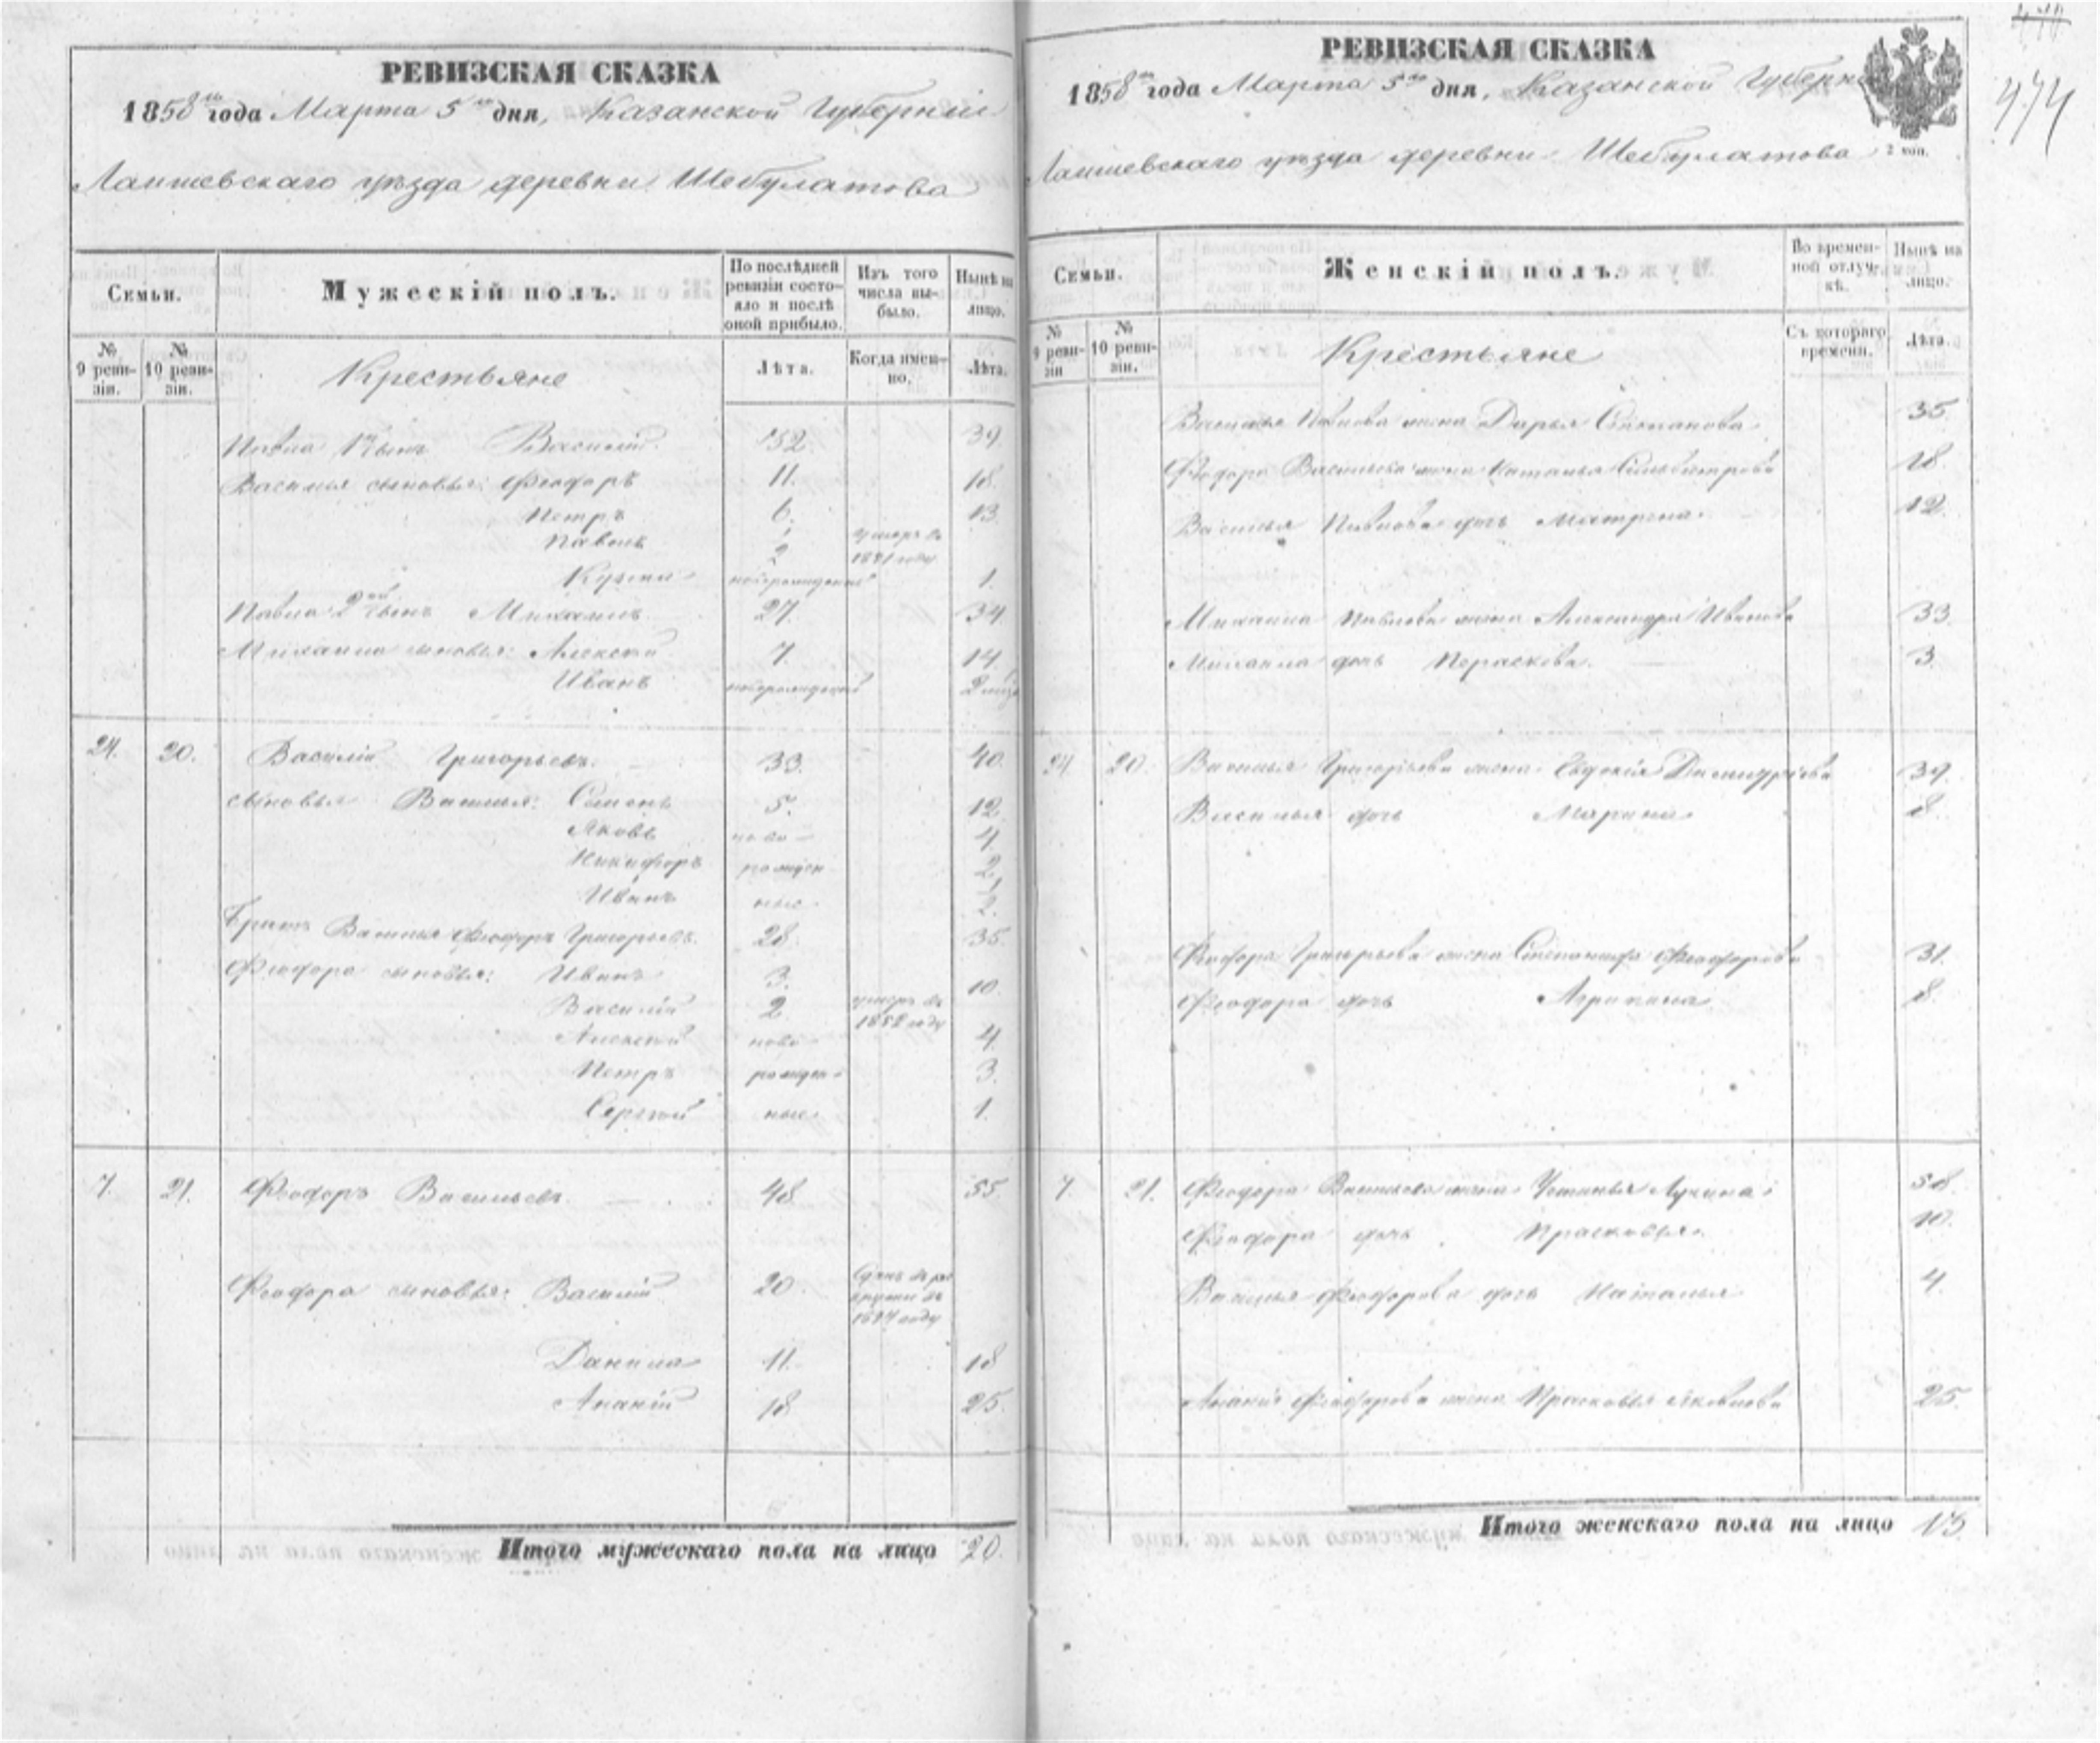 РЕВИЗСКАЯ СКАЗКА
1858 года Марта 5 дня, Казанской Губерніи
Лаишевскаго уѣзда деревни Шебулатова
Семьи.
Мужескій полъ.
По послѣдней ревизіи состояло и послѣ оной прибыло.
Изъ того числа выбыло.
Нынѣ на лицо.
№ 9 ревизіи.
№ 10 ревизіи.
Крестьяне
Лѣта.
Когда именно.
Лѣта.
Павла 1 сынъ Василій 32. 39.
Василья сыновья: Феодоръ 11. 18.
Петръ 6. 13.
Павелъ 2 умеръ въ
году
Кузма новорожденный 1.
Павла 2 сынъ Михаилъ 27. 34.
Михаила сыновья: Алексей 7. 14.
Иванъ новорожденный 2
24. 20. Василій Григорьевъ. 33. 40.
сыновья Василья: Семенъ 5. 12.
Яковъ ново- 4.
Никифоръ рожден 2
Иванъ ные.
Братъ Василья Феодоръ Григорьевъ. 28. 35.
Феодора сыновья: Иванъ 3. 10.
Василій 2 умеръ въ
1852 году
Алексей ново- 4.
Петръ рожден- 3.
Сергей ные. 1.
7. 21. Феодоръ Васильевъ. 48. 55.
Феодора сыновья: Василій 20.
году
Данила 11. 18
Ананій 18. 25.
Итого мужескаго пола на лицо 20.
474
РЕВИЗСКАЯ СКАЗКА
1858 года Марта 5 дня, Казанской Губерніи
Лаишевскаго уѣзда деревни Шебулатова
2 коп.
Семьи.
Женскій полъ.
Во временной отлучкѣ.
Нынѣ на лицо.
№ 9 ревизіи
№ 10 ревизіи.
Крестьяне
Съ котораго времени.
Лѣта.
Василья Павлова жена Дарья Степанова. 35.
Феодора Васильева жена Наталья Сильвистрова 18.
Василья Павлова дочь Матрена. 12.
Михаила Павлова жена Александра Иванова 33.
Михаила дочь Параскева. 3.
24. 20. Василья Григорьева жена Евдокія 39.
Василья дочь Марина 8.
Феодора Григорьева жена Степанида Феодорова 31.
Феодора дочь Агрипина 8.
7. 21. Феодора Васильева жена Устинья Лукина 58.
Феодора дочь Прасковья. 10.
Василья Феодорова дочь Наталья 4.
Ананія Феодорова жена Прасковья Яковлева 25.
Итого женскаго пола на лицо 13.